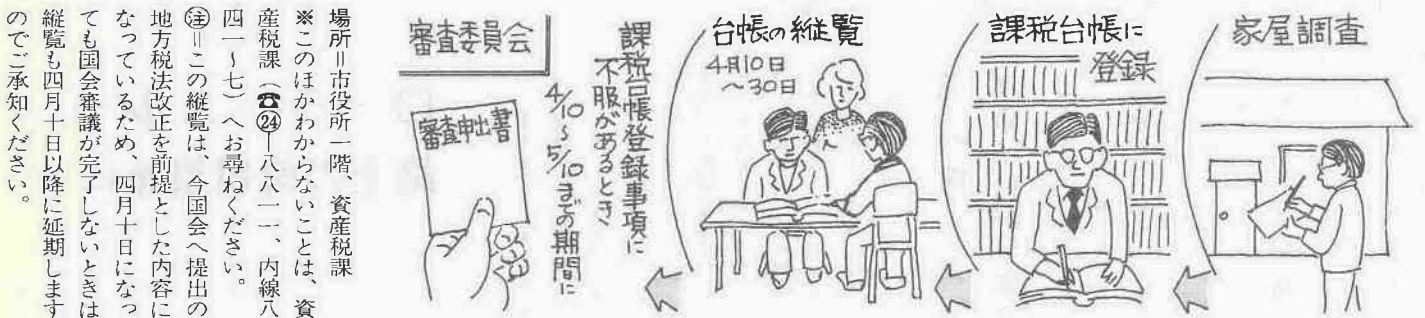 家屋調査
課税台帳に
登録
台帳の縦覧
4月10日
〜30日
課税台帳登録事項に
不服があるとき
4/10〜5/10までの期間に
審査委員会
審査申出書
場所＝市役所一階、資産税課
※このほかわからないことは、資
産税課（☎㉔―八八一一、内線八
四一〜七）へお尋ねください。
㊟＝この縦覧は、今国会へ提出の
地方税法改正を前提とした内容に
なっているため、四月十日になっ
ても国会審議が完了しないときは
縦覧も四月十日以降に延期します
のでご承知ください。